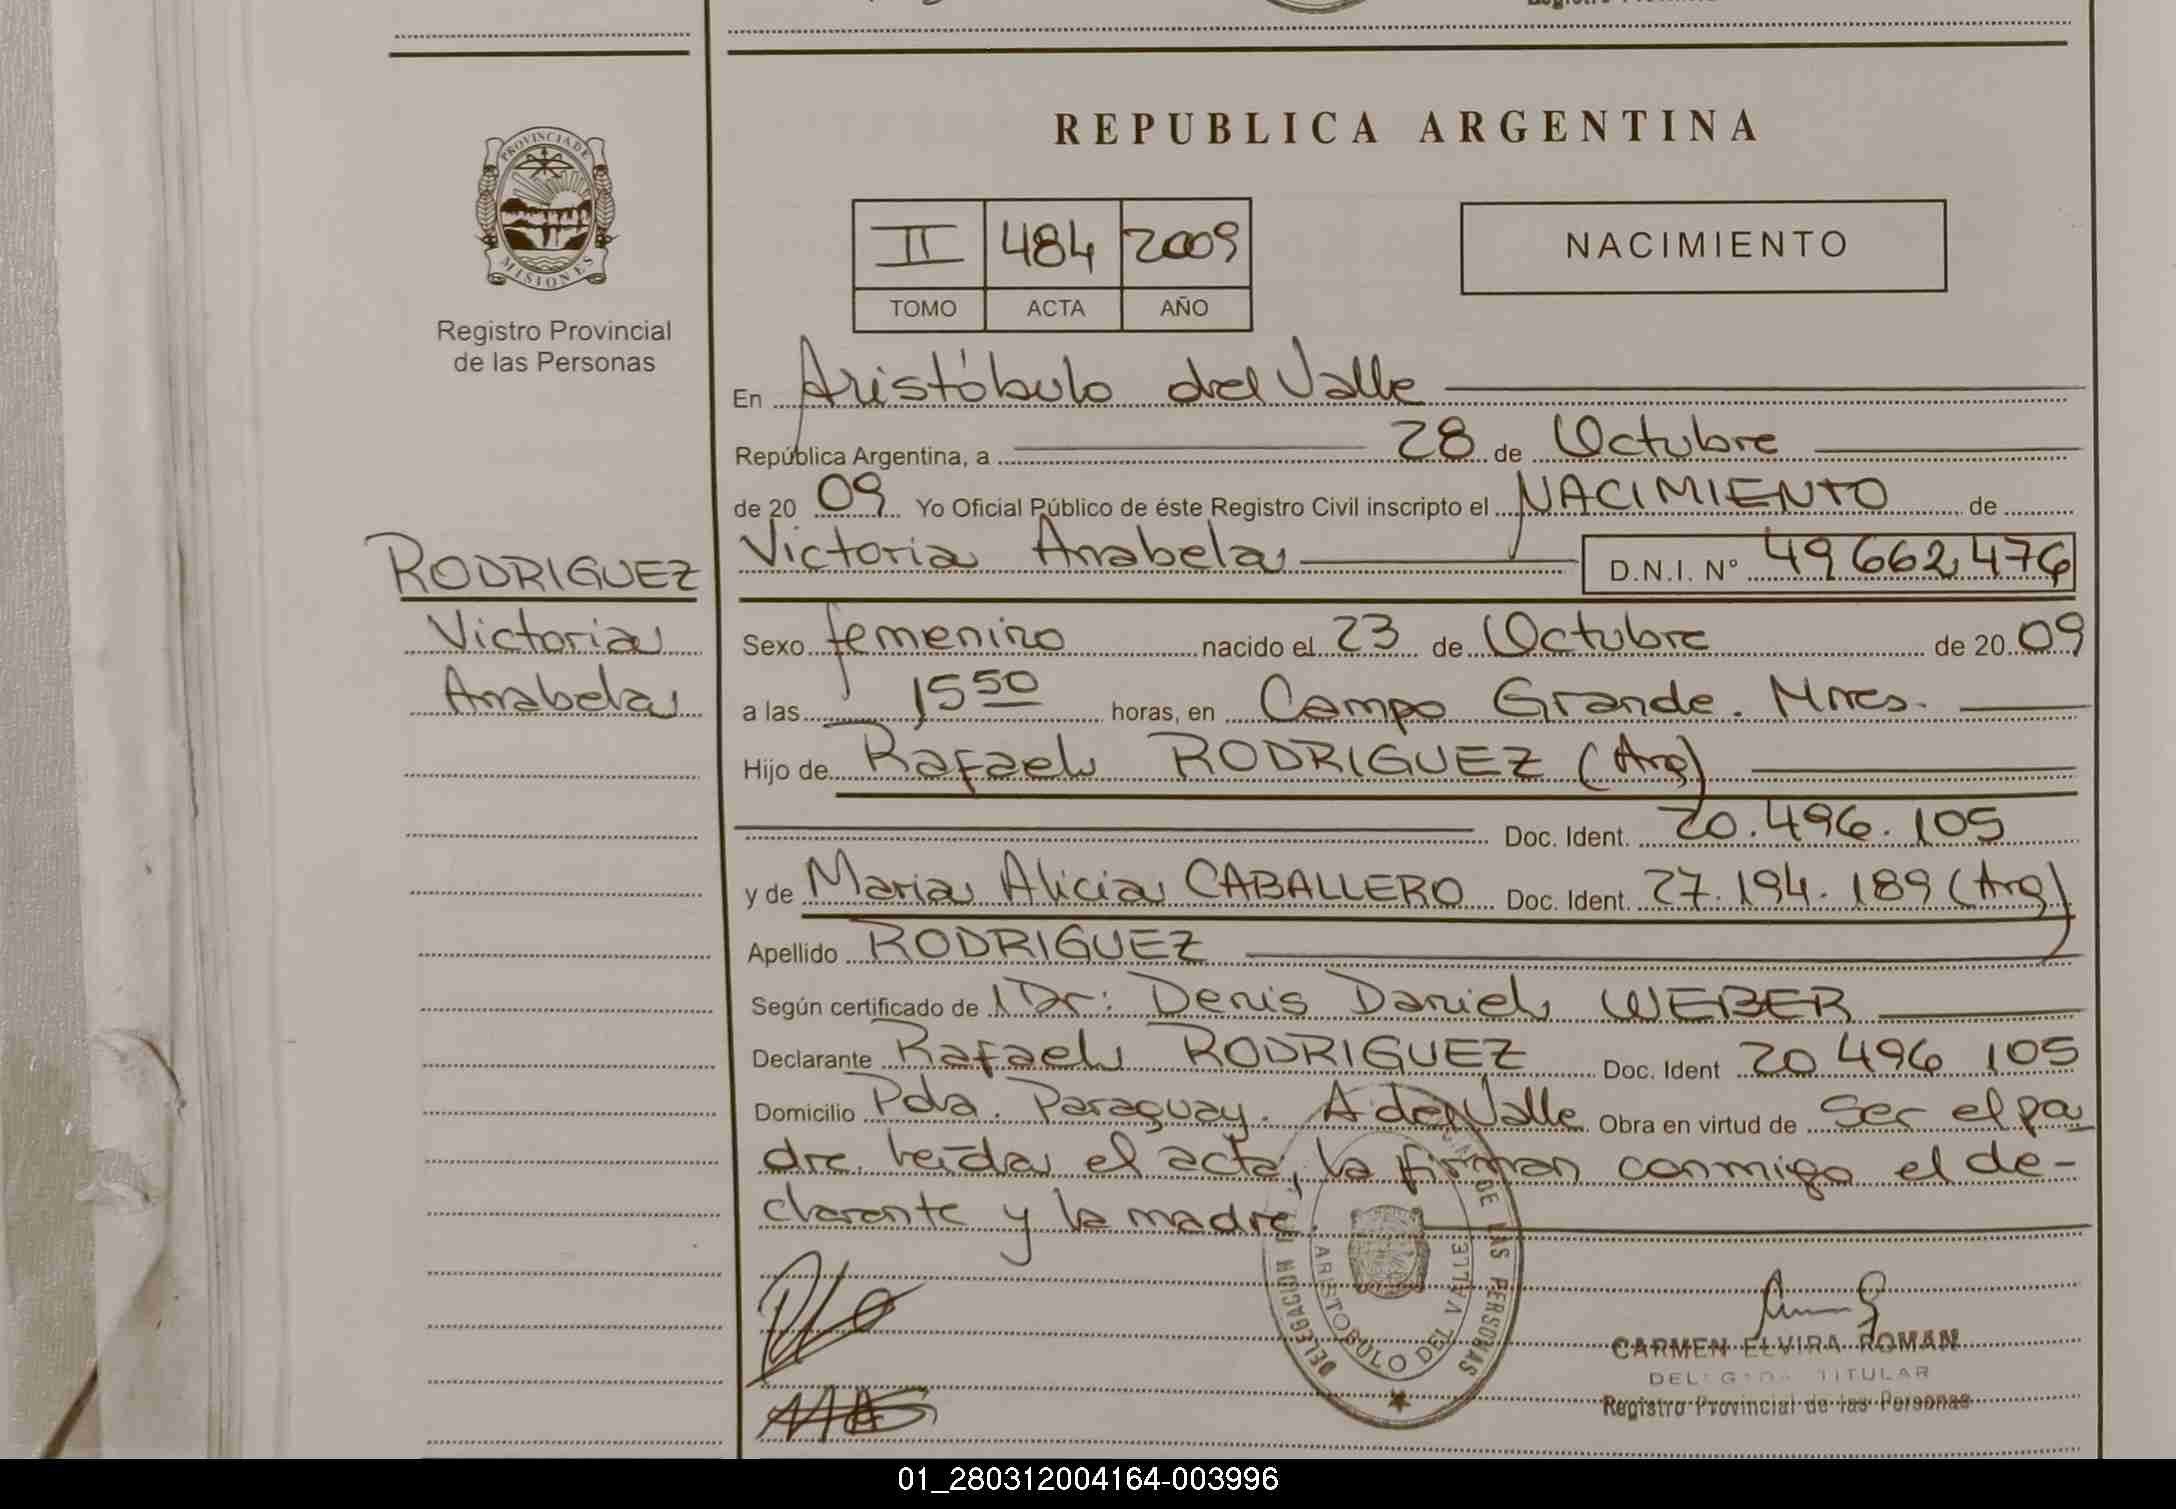 REPUBLICA ARGENTINA
PROVINCIA DE
MISIONES
Registro Provincial
de las Personas
II 484 2009
TOMO ACTA AÑO
NACIMIENTO
En Aristóbulo del Valle
República Argentina, a 28 de Octubre
de 20 09 Yo Oficial Público de éste Registro Civil inscripto el NACIMIENTO de
Victoria Anabela D.N.I. N° 49662476
RODRIGUEZ
Victoria
Anabela
Sexo femenino nacido el 23 de Octubre de 20 09
a las 15 50 horas, en Campo Grande. Mnes.
Hijo de Rafael RODRIGUEZ (Arg)
Doc. Ident. 20.496.105
y de Maria Alicia CABALLERO Doc. Ident. 27.194.189 (Arg)
Apellido RODRIGUEZ
Según certificado de Dr: Denis Daniel WEBER
Declarante Rafael RODRIGUEZ Doc. Ident 20 496 105
Domicilio Pda. Paraguay. A del Valle Obra en virtud de ser el pa
dre. leida el acta, la firman conmigo el de-
clarante y la madre.
DE LAS PERSONAS
DELEGACION
ARISTOBULO DEL VALLE
CARMEN ELVIRA ROMAN
DELEGADA TITULAR
Registro Provincial de las Personas
01_280312004164-003996